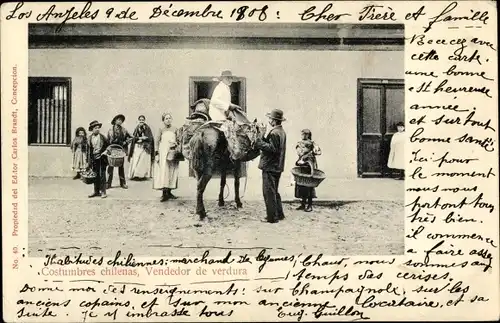 Los Angeles 9 de Décembre 1906: Cher Frère et famille
Recevez avec
cette carte.
une bonne
et heureuse
année;
et surtout
bonne santé
Ici pour
le moment
nous nous
portons tous
très bien.
il commence
a faire assez
chaud, nous sommes au
temps des cerises.
No. 40. Propiedad del Editor Carlos Brandt, Concepcion.
Habitudes chiliennes: marchand de legumes;
Costumbres chilenas, Vendedor de verdura
Donne moi des renseignements: sur Champagnole, sur les
anciens copains, et sur mon ancienne locataire, et sa
suite. Je vous embrasse tous
Eug. Guillon